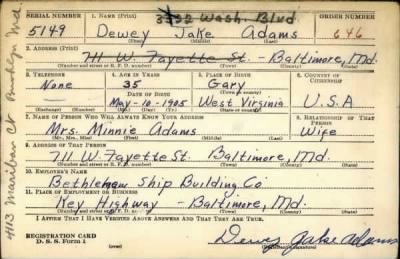 SERIAL NUMBER 1. NAME (Print) ORDER NUMBER
3722 Wash. Blvd
5149 Dewey Jake Adams 646
(First) (Middle) (Last)
2. ADDRESS (Print)
711 W. Fayette St. - Baltimore, Md.
(Number and street or R. F. D. number) (Town) (County) (State)
3. TELEPHONE 4. AGE IN YEARS 5. PLACE OF BIRTH 6. COUNTRY OF CITIZENSHIP
None 35 Gary
DATE OF BIRTH (Town or county)
May-10-1905 West Virginia U.S.A
(Exchange) (Number) (Mo.) (Day) (Yr.) (State or country)
7. NAME OF PERSON WHO WILL ALWAYS KNOW YOUR ADDRESS 8. RELATIONSHIP OF THAT PERSON
Mrs. Minnie Adams Wife
(Mr., Mrs., Miss) (First) (Middle) (Last)
9. ADDRESS OF THAT PERSON
711 W. Fayette St. Baltimore, Md.
(Number and street or R. F. D. number) (Town) (County) (State)
10. EMPLOYER'S NAME
Bethlehem Ship Building Co.
11. PLACE OF EMPLOYMENT OR BUSINESS
Key Highway - Baltimore, Md.
(Number and street or R. F. D. number) (Town) (County) (State)
I AFFIRM THAT I HAVE VERIFIED ABOVE ANSWERS AND THAT THEY ARE TRUE.
REGISTRATION CARD
D. S. S. Form 1
Dewey Jake Adams
(Registrant's signature)
4113 Ct Md.